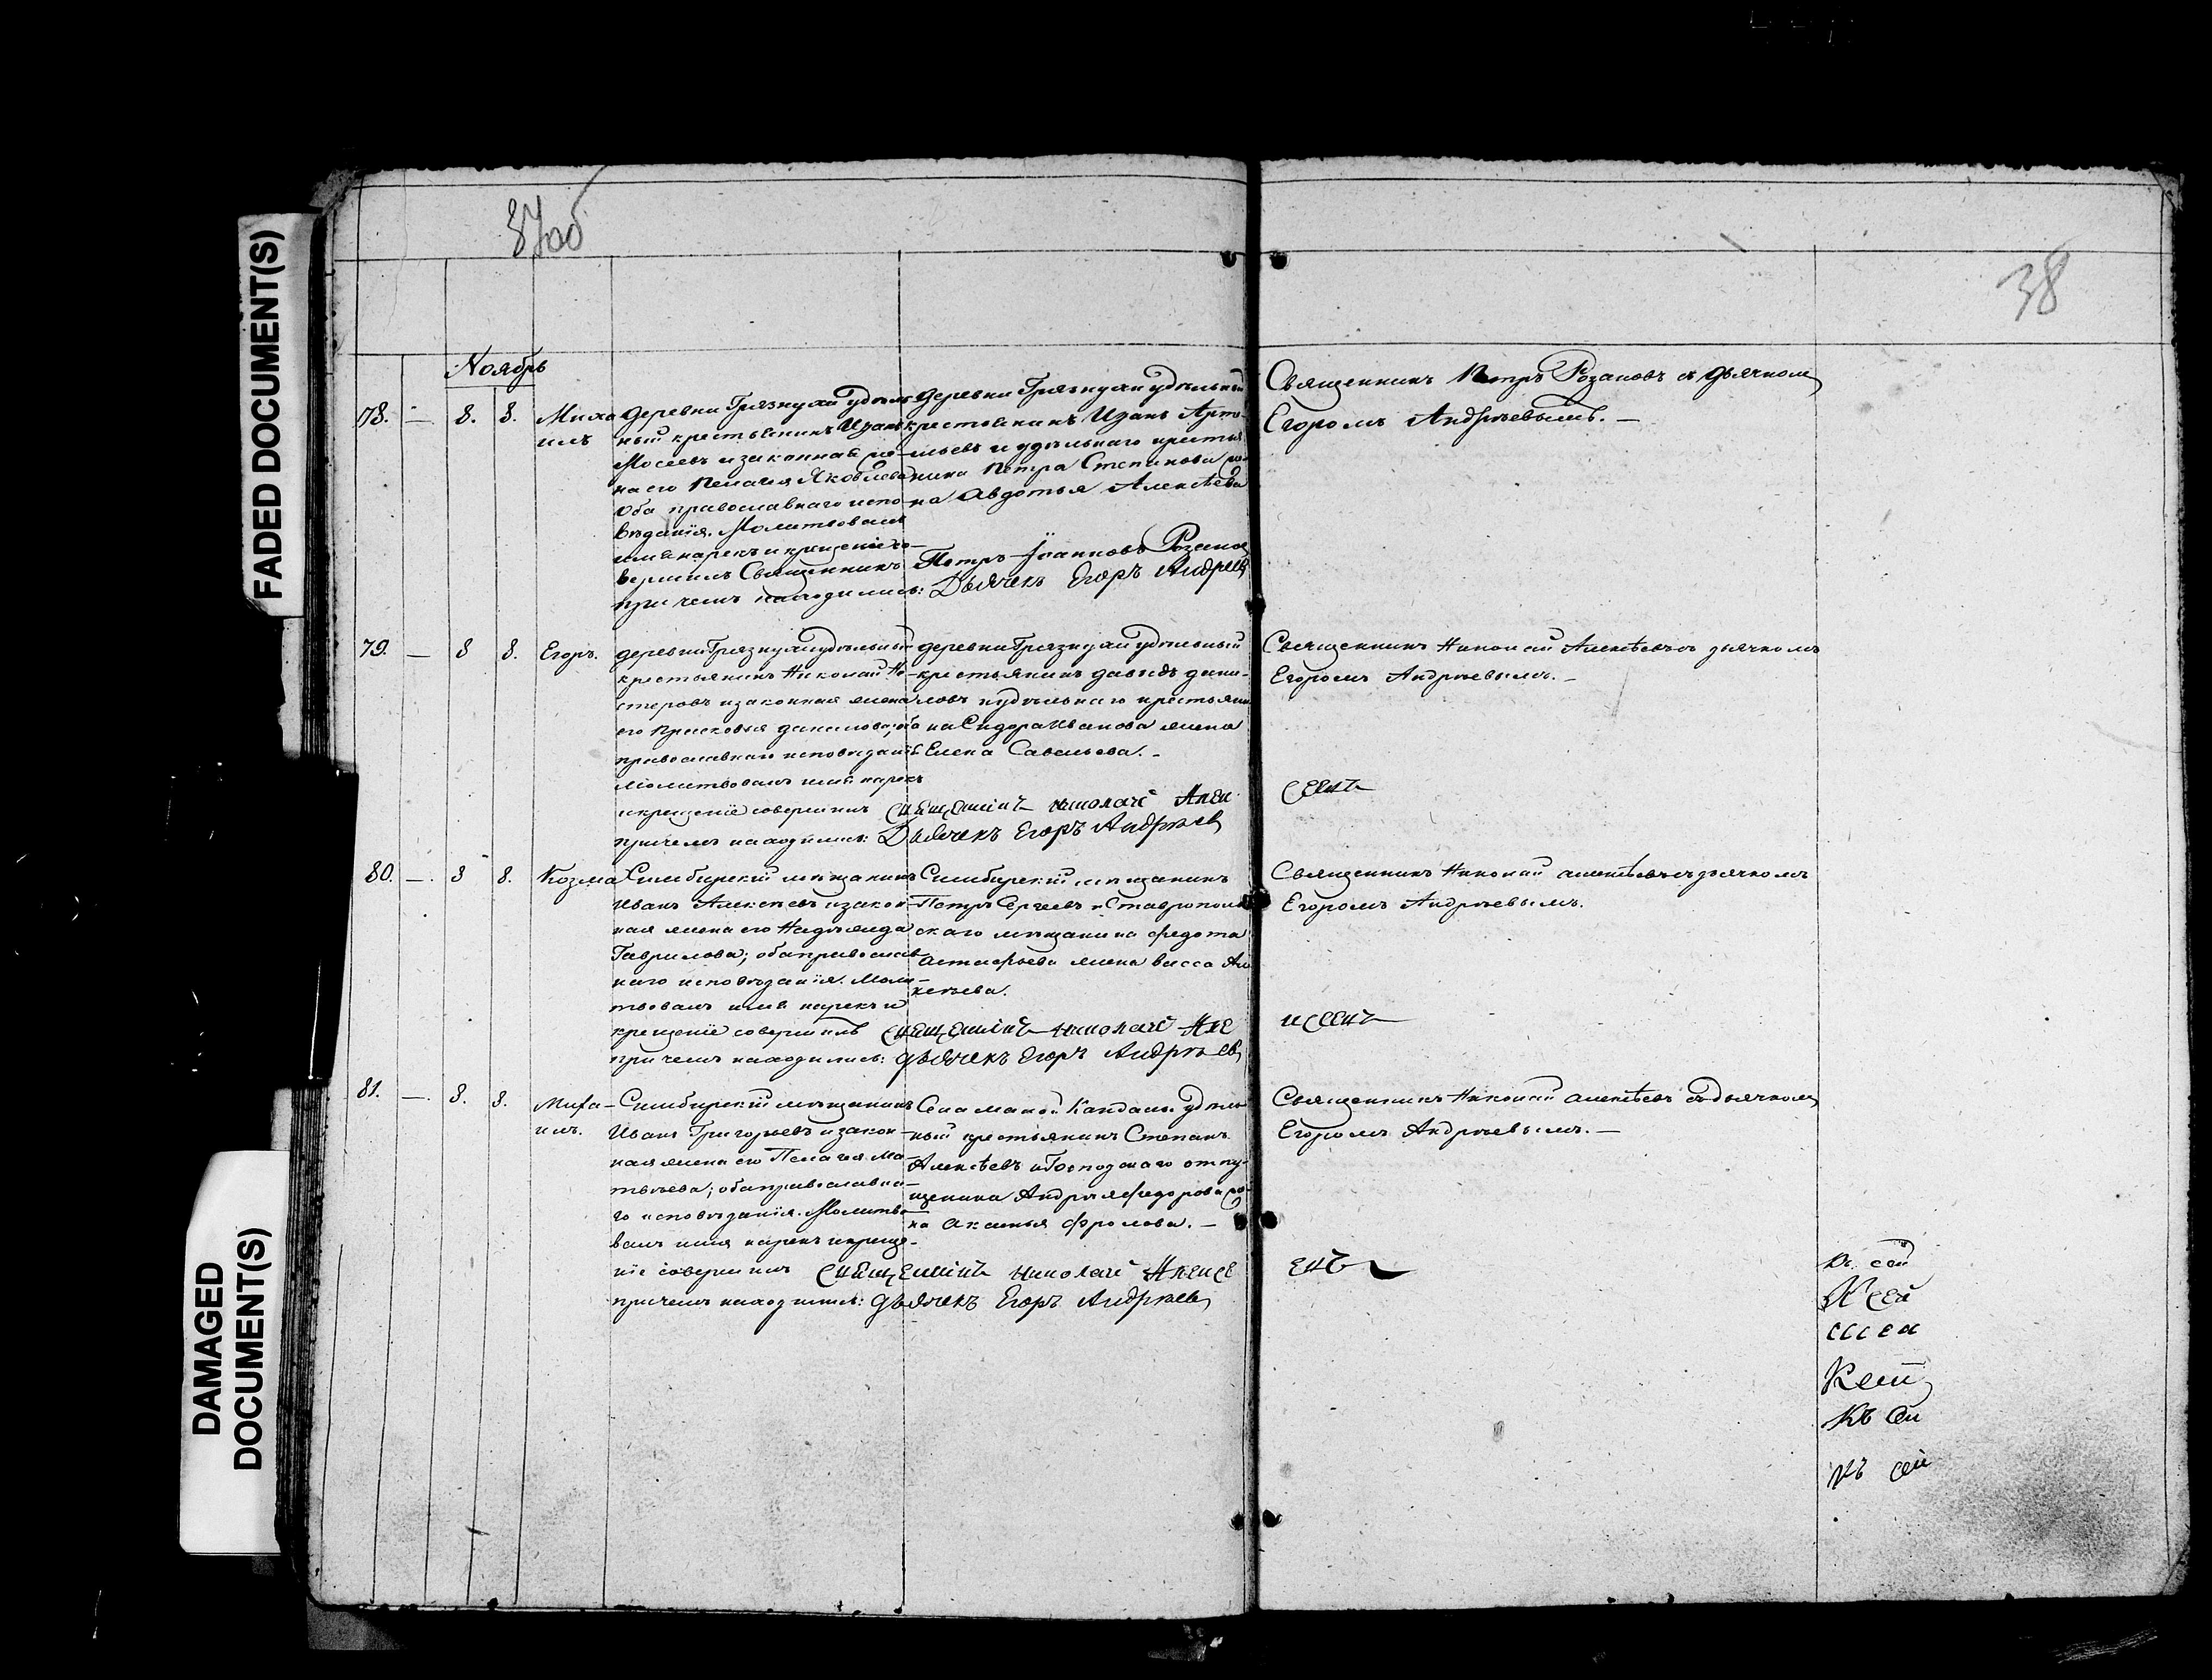 FADED DOCUMENT(S)
DAMAGED
DOCUMENT(S)
87об
38
Ноябрь
78. — 8. 8.
Миха
илъ
деревни Грязнухи удѣль
ный крестьянинъ Иванъ
Мосеевъ и законная же-
на его Пелагия Яковлева
оба православнаго испо-
вѣданія. Молитвовалъ
имя нарекъ и крещеніе со-
вершилъ Священникъ Петръ Іоанновъ Розанов
при чемъ находились: Дьячекъ Егоръ Андреев
деревни Грязнухи удѣльный
крестьянинъ Иванъ Арте-
мьевъ и удѣльнаго крестья
нина Петра Степанова же-
на Авдотья Алексѣева
Священникъ Петръ Розановъ съ дьячкомъ
Егоромъ Андрѣевымъ. —
79. — 8 8.
Егоръ.
деревни Грязнухи удѣльный
крестьянинъ Николай Не-
стеровъ и законная жена
его Прасковья Данилова; оба
православнаго исповѣданія
Молитвовалъ имя нарекъ
и крещеніе совершилъ Священникъ Николай Алек
сеевъ
при чемъ находились: Дьячекъ Егоръ Андрѣев
деревни Грязнухи удѣльный
крестьянинъ Давыдъ Дани-
ловъ и удѣльнаго крестьяни
на Сидора Иванова жена
Елена Савельева. —
Священникъ Николай Алексѣевъ съ дьячкомъ
Егоромъ Андрѣевымъ. —
80. — 8 8.
Козма
Симбирскій мѣщанинъ
Иванъ Алексѣевъ и закон-
ная жена его Надѣжда
Гаврилова; оба православ
наго исповѣданія. Моли-
твовалъ имя нарекъ и
крещеніе совершилъ Священникъ Николай Але
ксеевъ
при чемъ находились: дьячекъ Егоръ Андрѣев
Симбирскій мѣщанинъ
Петръ Сергеевъ и Ставрополь
скаго мѣщанина Федота
Астафьева жена Васса Але
ксѣева.
Священникъ Николай Алексѣевъ съ дьячкомъ
Егоромъ Андрѣевымъ.
81. — 8. 8.
Миха-
илъ.
Симбирскій мѣщанинъ
Иванъ Григорьевъ и закон-
ная жена его Пелагия Ма-
твѣева; оба православна-
го исповѣданія. Молитво-
валъ имя нарекъ и креще-
ніе совершилъ Священникъ Николай Алексе
евъ
при чемъ находились: дьячекъ Егоръ Андрѣев
Села Малой Кандалы удѣль
ный крестьянинъ Степанъ
Алексѣевъ и Господскаго отпу-
щеника Андрѣя Федорова же-
на Акулина Фролова. —
Священникъ Николай Алексѣевъ съ дьячкомъ
Егоромъ Андрѣевымъ. —
Къ сей
Къ сей